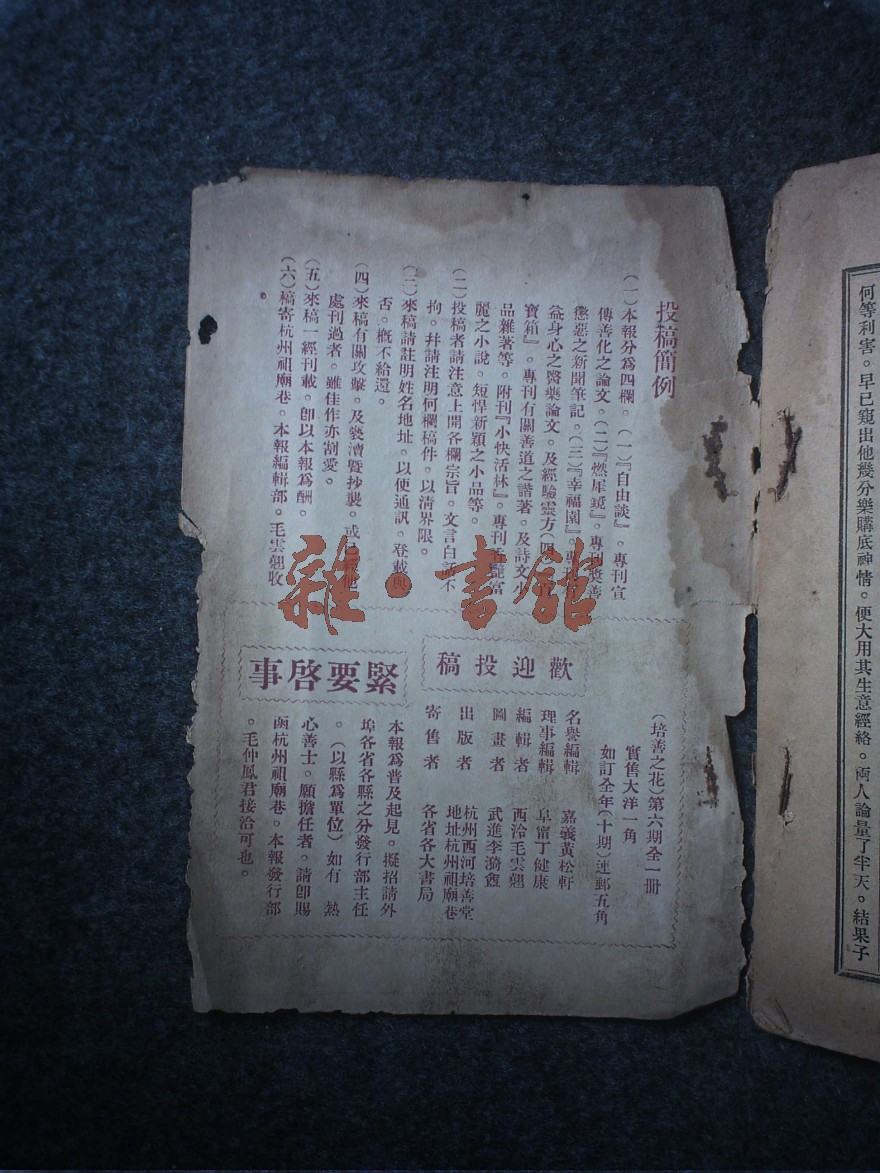 投稿簡例
（一）本報分爲四欄。（一）『自由談』。專刊宣
傳善化之論文。（二）『燃犀鏡』。專刊獎善
懲惡之新聞筆記。（三）『幸福園』。專
益身心之醫藥論文。及經驗靈方（四
寶箱』。專刊有關善道之諧著。及詩文小
品雜著等。附刊『小快活林』。專刊香艷富
麗之小說。短悍新穎之小品等。
（二）投稿者請注意上開各欄宗旨。文言白話不
拘。幷請注明何欄稿件。以清界限。
（三）來稿請註明姓名地址。以便通訊。登載與
否。槪不給還。
（四）來稿有關攻擊。及褻瀆暨抄襲。或已 他
處刊過者。雖佳作亦割愛。
（五）來稿一經刊載。卽以本報爲酬。
（六）稿寄杭州祖廟巷。本報編輯部。毛雲翹收
。
（培善之花）第六期全一冊
實售大洋一角
如訂全年（十期）連郵五角
歡迎投稿
名譽編輯 嘉義黃松軒
理事編輯 阜甯丁健康
編輯者 西泠毛雲翹
圖畫者 武進李漪
出版者 杭州西河培善堂
地址杭州祖廟巷
寄售者 各省各大書局
緊要啓事
本報爲普及起見。擬招請外
埠各省各縣之分發行部主任
。（以縣爲單位）如有 熱
心善士。願擔任者。請卽賜
函杭州祖廟巷。本報發行部
。毛仲鳳君接洽可也。
何等利害。早已窺出他幾分樂購底神情。便大用其生意經絡。兩人論量了半天。結果子
雜·書館